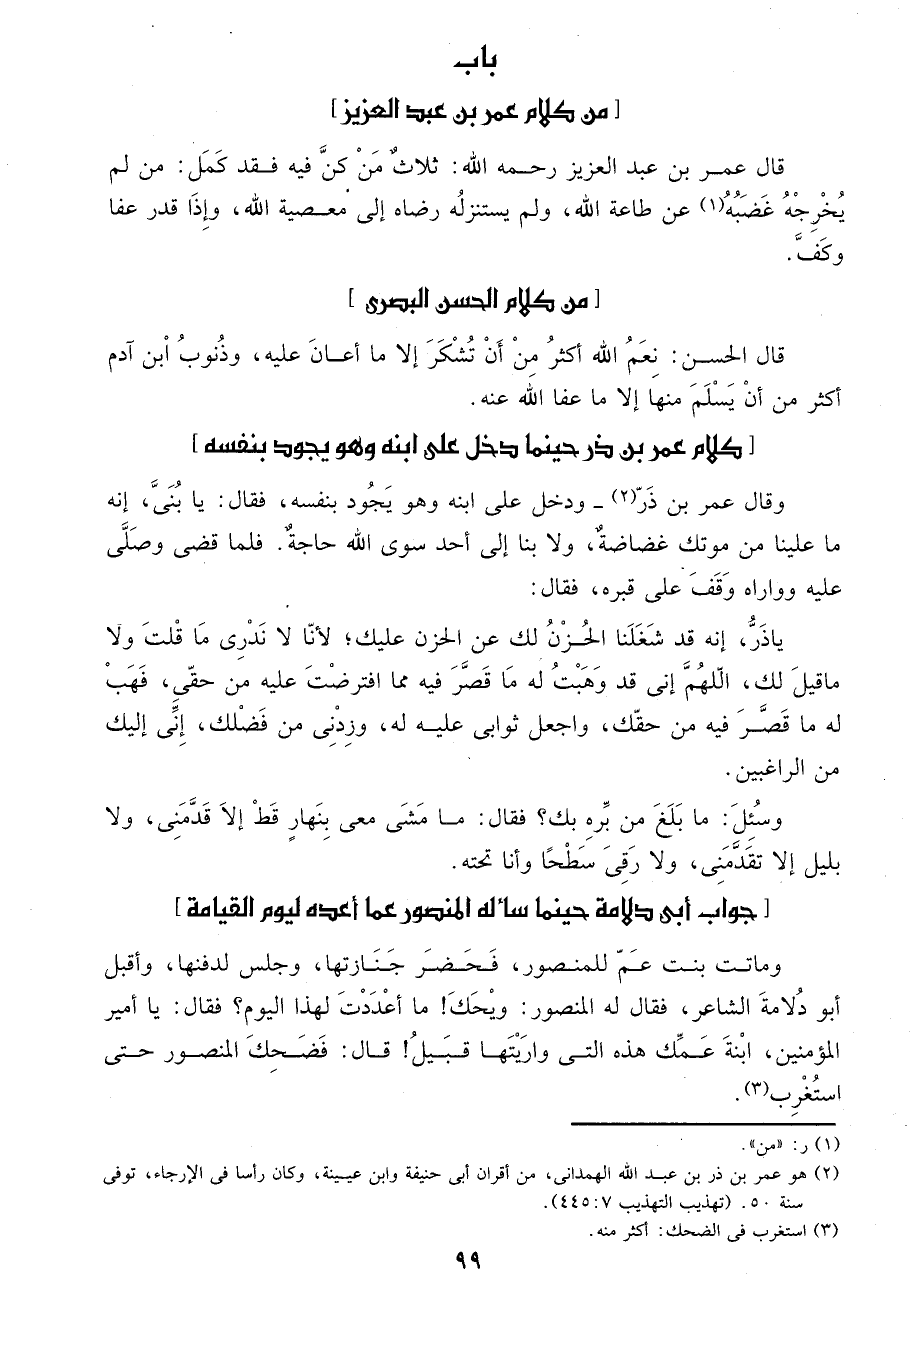 باب
[ من كلام عمر بن عبد العزيز ]
قال عمـر بن عبد العزيز رحـمه الله: ثلاثٌ مَنْ كنَّ فيه فـقد كَمَل: من لم
يُخْرِجْهُ غَضَبُهُ(١) عن طاعة الله، ولم يستنزلُه رضاه إلى معـصية الله، وإذَا قدر عفا
وكَفَّ.
[ من كلام الحسن البصرى ]
قال الحسـن: نِعَمُ الله أكثرُ مِنْ أَنْ تُشْكَرَ إلا ما أعـانَ عليه، وذُنوبُ أبن آدم
أكثر من أنْ يَسْلَمَ منها إلا ما عفا الله عنه.
[ كلام عمر بن ذر حينما دخل على ابنه وهو يجود بنفسه ]
وقال عمر بن ذَرّ(٢) ـ ودخل على ابنه وهو يَجُود بنفسه، فقال: يا بُنَىَّ، إنه
ما علينا من موتك غضاضةٌ، ولا بنا إلى أحد سوى الله حاجةٌ. فلما قضى وصلَّى
عليه وواراه وقَفَ على قبره، فقال:
ياذَرُّ، إنه قد شَغَلَنا الحُزْنُ لك عن الحزن عليك؛ لأنّا لا نَدْرِى مَا قْلتَ ولا
ماقيلَ لك، الّلهُمَّ إنى قد وَهَبْتُ له مَا قصَّرَ فيه مما افترضْتَ عليه من حقّى، فَهَبْ
له ما قَصَّـرَ فيه من حقّك، واجعل ثوابى عليـه له، وزِدْنِى من فَضْلك، إنِّى إليك
من الراغبين.
وسُئِلَ: ما بَلَغَ من بِّره بك؟ فقال: مـا مَشَى معى بِنَهارٍ قَطْ إلاَ قَدَّمَنِى، ولا
بليل إلا تقَدَّمَنِى، ولا رَقِىَ سَطْحًا وأنا تحته.
[ جواب أبى دلامة حينما سأله المنصور عما أعده ليوم القيامة ]
وماتـت بنـت عـمّ للمنـصور، فَـحَـضـرَ جَـنَـازتها، وجلس لدفنها، وأقبل
أبو دُلامةَ الشاعر، فقال له المنصور: ويْحَكَ! ما أعْدَدْتَ لهذا اليوم؟ فقال: يا أمير
المؤمنين، ابْنةَ عَـمِّك هذه التـى وارَيْتَهـا قـبَـيلُ! قـال: فَضَـحِكَ المنصـور حـتى
استُغْرِب(٣).
(١) ر: «من».
(٢) هو عمر بن ذر بن عبـد الله الهمدانى، من أقران أبى حنيفة وابن عيـينة، وكان رأسا فى الإرجاء، توفى
سنة ٥٠. (تهذيب التهذيب ٧ :٤٤٥).
(٣) استغرب فى الضحك: أكثر منه.
٩٩